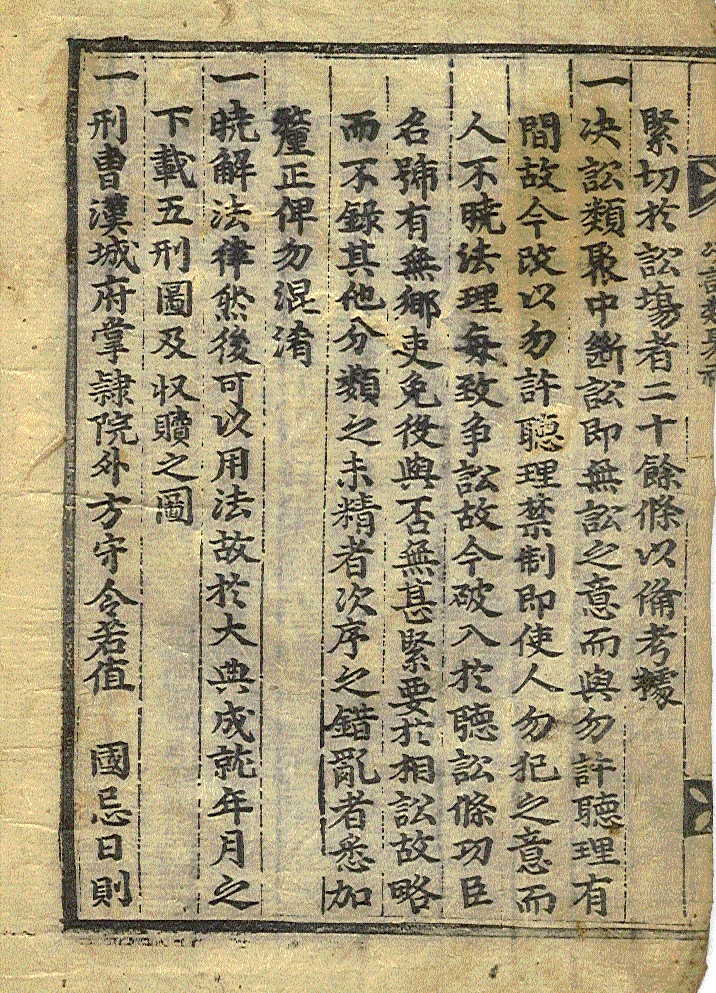 緊切於訟塲者二十餘條以俻考據
一决訟類聚中斷訟即無訟之意而與勿許聽理有
間故今改以勿許聽理禁制即使人勿犯之意而
人不曉法理每致爭訟故今破入於聽訟條功臣
名號有無鄕吏免役與否無甚緊要於相訟故略
而不錄其他分類之未精者次序之錯亂者悉加
釐正俾勿混淆
一曉解法律然後可以用法故於大典成就年月之
下載五刑圖及収贖之圖
一刑曹漢城府掌隷院外方守令若值 國忌日則